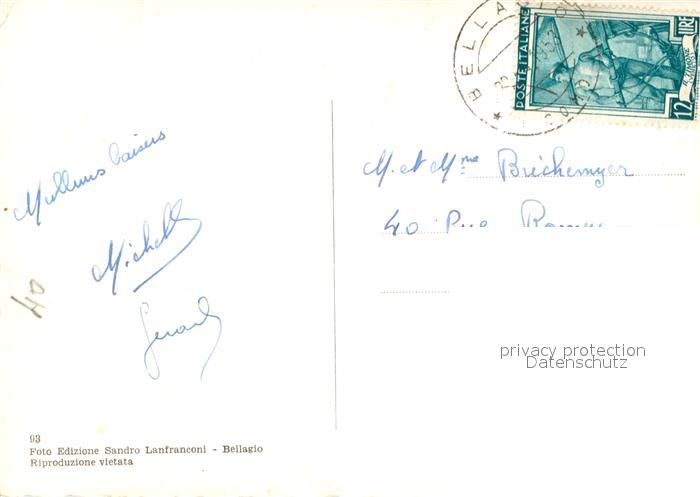 Meilleurs baisers
Michelle
Gerard
40
93
Foto Edizione Sandro Lanfranconi - Bellagio
Riproduzione vietata
BELLA
COMO
POSTE ITALIANE
12 LIRE
M. et Mme Bréchemyer
40 Rue
privacy protection
Datenschutz